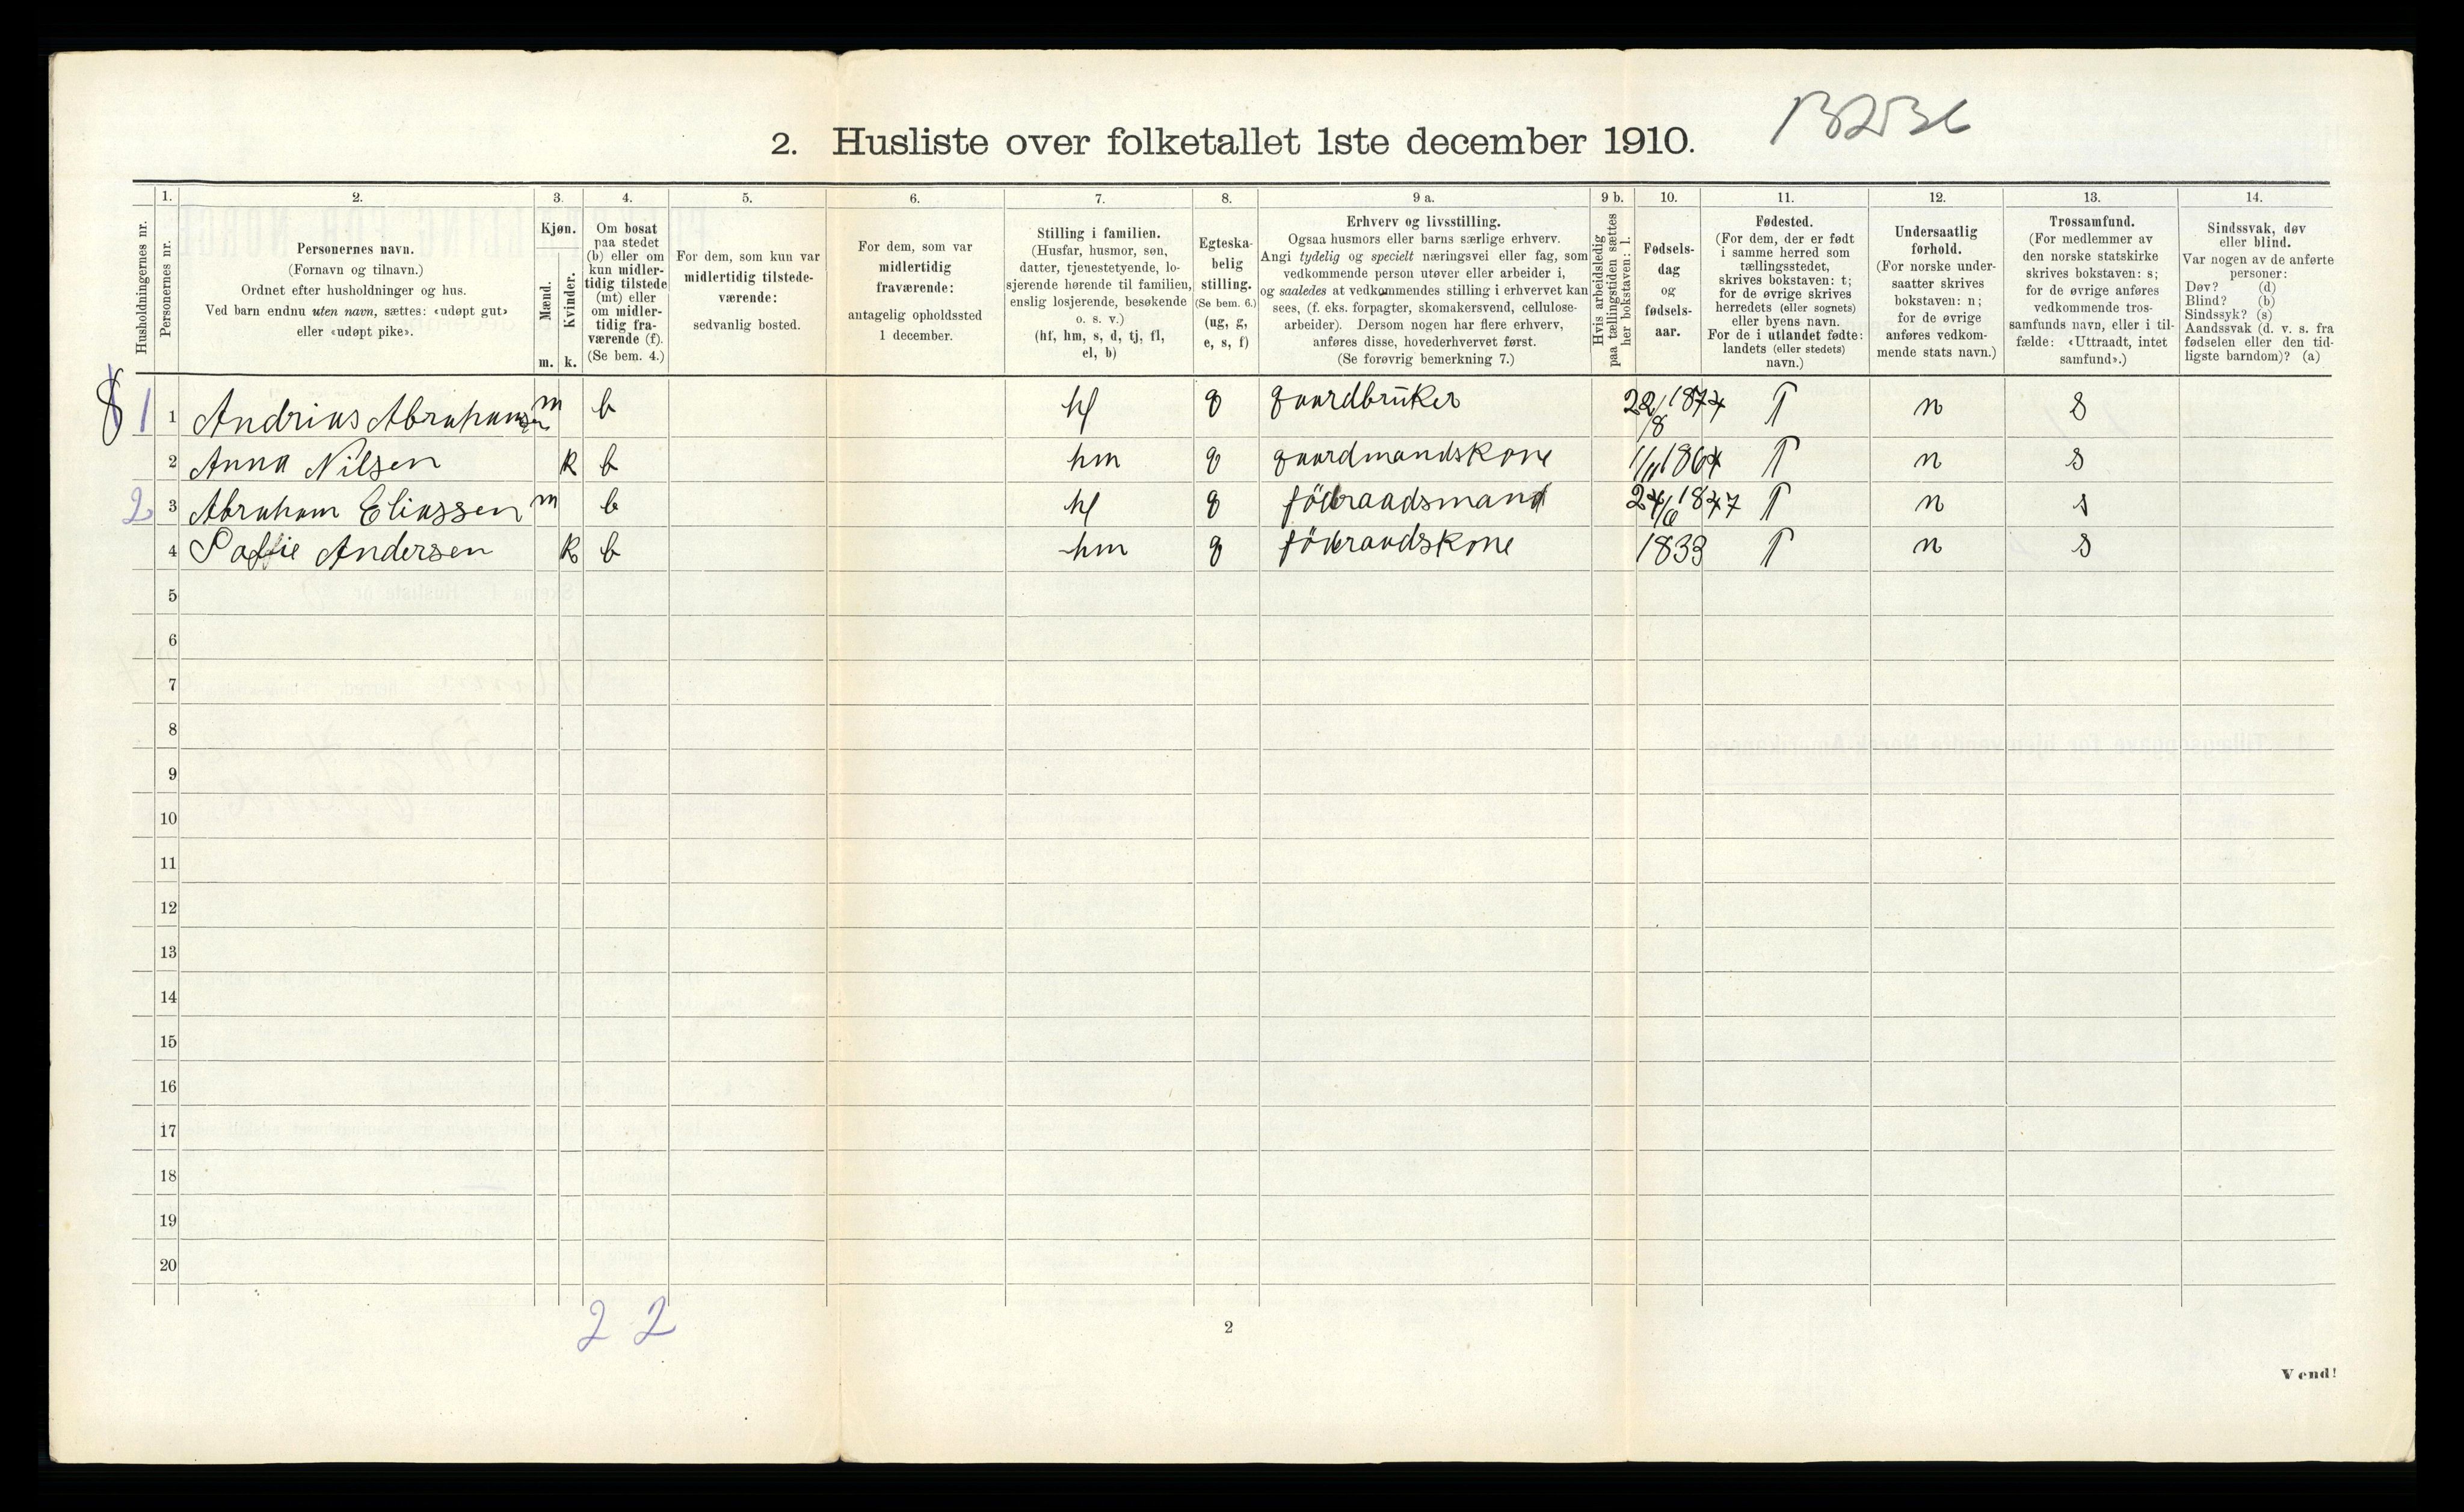 2. Husliste over folketallet 1ste december 1910.
1. 2. 3. 4. 5. 6. 7. 8. 9 a. 9 b. 10. 11. 12. 13. 14.
Husholdningernes nr.
Personernes nr.
Personernes navn.
(Fornavn og tilnavn.)
Ordnet efter husholdninger og hus.
Ved barn endnu uten navn, sættes: «udøpt gut»
eller «udøpt pike».
Kjøn.
Mænd.
Kvinder.
m. k.
Om bosat
paa stedet
(b) eller om
kun midler-
tidig tilstede
(mt) eller
om midler-
tidig fra-
værende (f).
(Se bem. 4.)
For dem, som kun var
midlertidig tilstede-
værende:
sedvanlig bosted.
For dem, som var
midlertidig
fraværende:
antagelig opholdssted
1 december.
Stilling i familien.
(Husfar, husmor, søn,
datter, tjenestetyende, lo-
sjerende hørende til familien,
enslig losjerende, besøkende
o. s. v.)
(hf, hm, s, d, tj, fl,
el, b)
Egteska-
belig
stilling.
(Se bem. 6.)
(ug, g,
e, s, f)
Erhverv og livsstilling.
Ogsaa husmors eller barns særlige erhverv.
Angi tydelig og specielt næringsvei eller fag, som
vedkommende person utøver eller arbeider i,
og saaledes at vedkommendes stilling i erhvervet kan
sees, (f. eks. forpagter, skomakersvend, cellulose-
arbeider). Dersom nogen har flere erhverv,
anføres disse, hovederhvervet først.
(Se forøvrig bemerkning 7.)
Hvis arbeidsledig
paa tællingstiden sættes
her bokstaven: l.
Fødsels-
dag
og
fødsels-
aar.
Fødested.
(For dem, der er født
i samme herred som
tællingsstedet,
skrives bokstaven: t;
for de øvrige skrives
herredets (eller sognets)
eller byens navn.
For de i utlandet fødte:
landets (eller stedets)
navn.)
Undersaatlig
forhold.
(For norske under-
saatter skrives
bokstaven: n;
for de øvrige
anføres vedkom-
mende stats navn.)
Trossamfund.
(For medlemmer av
den norske statskirke
skrives bokstaven: s;
for de øvrige anføres
vedkommende tros-
samfunds navn, eller i til-
fælde: «Uttraadt, intet
samfund».)
Sindssvak, døv
eller blind.
Var nogen av de anførte
personer:
Døv? (d)
Blind? (b)
Sindssyk? (s)
Aandssvak (d. v. s. fra
fødselen eller den tid-
ligste barndom)? (a)
1 1 Andrias Abrahamsen m b hf g gaardbruker 22/8 1874 T n s
2 Anna Nilsen k b hm g gaardmandskone 1/11 1864 T n s
2 3 Abraham Eliassen m b hf g föderaadsmand 24/6 1847 T n s
4 Soffie Andersen k b hm g föderaadskone 1833 T n s
5
6
7
8
9
10
11
12
13
14
15
16
17
18
19
20
2 2
2
Vend!